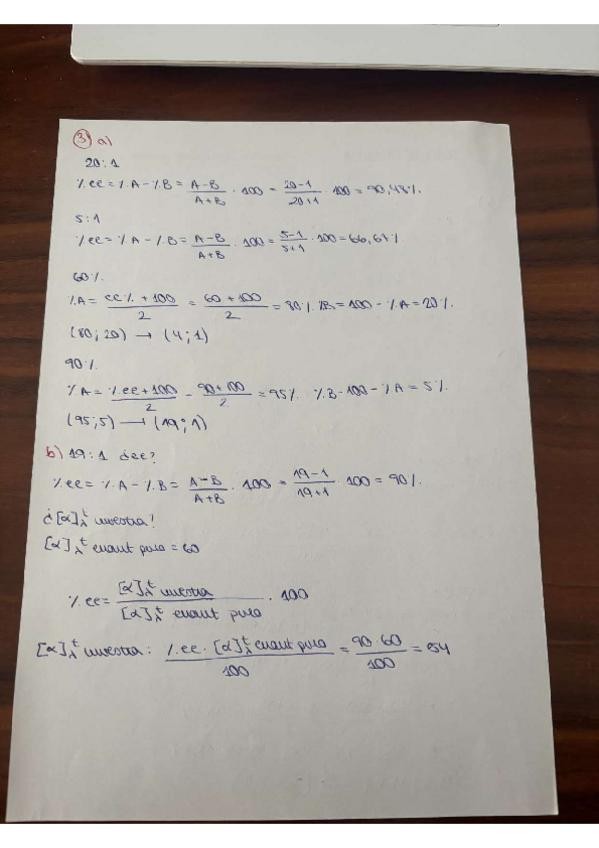 3 a)
20:1
%ee = %A - %B = A-B/A+B · 100 = 20-1/20+1 · 100 = 90,48%.
5:1
%ee = %A - %B = A-B/A+B · 100 = 5-1/5+1 · 100 = 66,67%
60%.
%A = ee% + 100/2 = 60+100/2 = 80% %B = 100 - %A = 20%.
(80;20) → (4;1)
90%.
%A = %ee+100/2 = 90+100/2 = 95% %B = 100 - %A = 5%.
(95;5) → (19;1)
b) 19:1 ¿ee?
%ee = %A - %B = A-B/A+B · 100 = 19-1/19+1 · 100 = 90%.
¿[α]λt muestra?
[α]λt enant pura = 60
%ee = [α]λt muestra/[α]λt enant pura · 100
[α]λt muestra: %ee · [α]λt enant pura/100 = 90·60/100 = 54